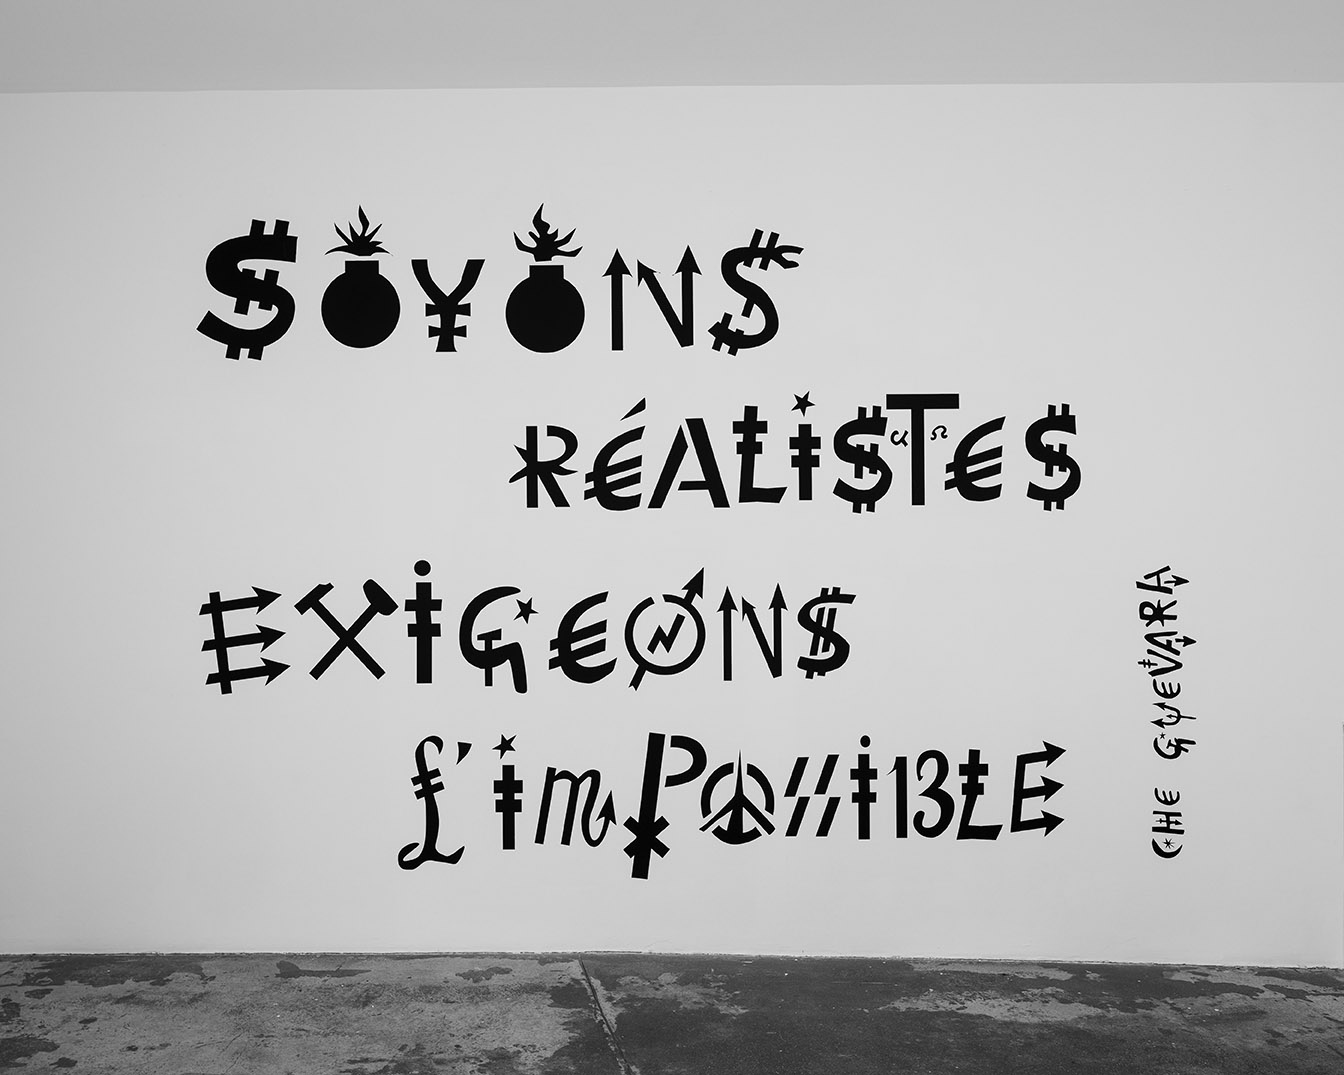 SOYONS
RÉALISTES
EXIGEONS
L'IMPOSSIBLE
CHE GUEVARA